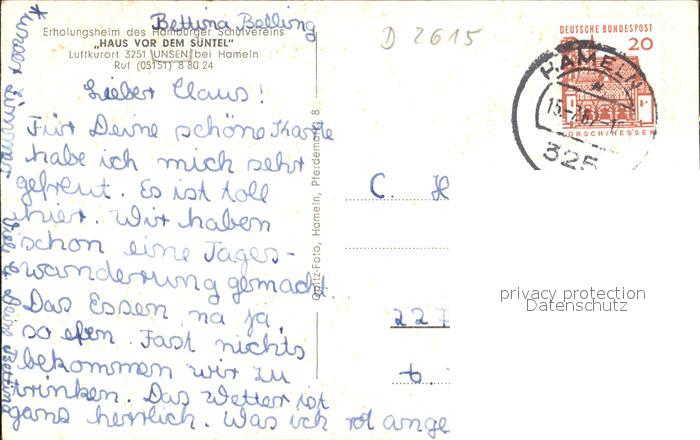 Bettina Belling
Erholungsheim des Hamburger Schulvereins
„HAUS VOR DEM SÜNTEL"
Luftkurort 3251 UNSEN bei Hameln
Ruf (05151) 8 80 24
Lieber Claus!
Für Deine schöne Karte
habe ich mich sehr
gefreut. Es ist toll
hier. Wir haben
schon eine Tages-
wanderung gemacht.
Das Essen, na ja,
so eben. Fast nichts
bekommen wir zu
trinken. Das Wetter ist
ganz herrlich. Was ich rot ange
Zimmer
Deine Bettina
Opitz-Foto, Hameln, Pferdemarkt 8
D 2615
DEUTSCHE BUNDESPOST
20
LORSCH/HESSEN
HAMELN
325
C. H
227
6.
privacy protection
Datenschutz